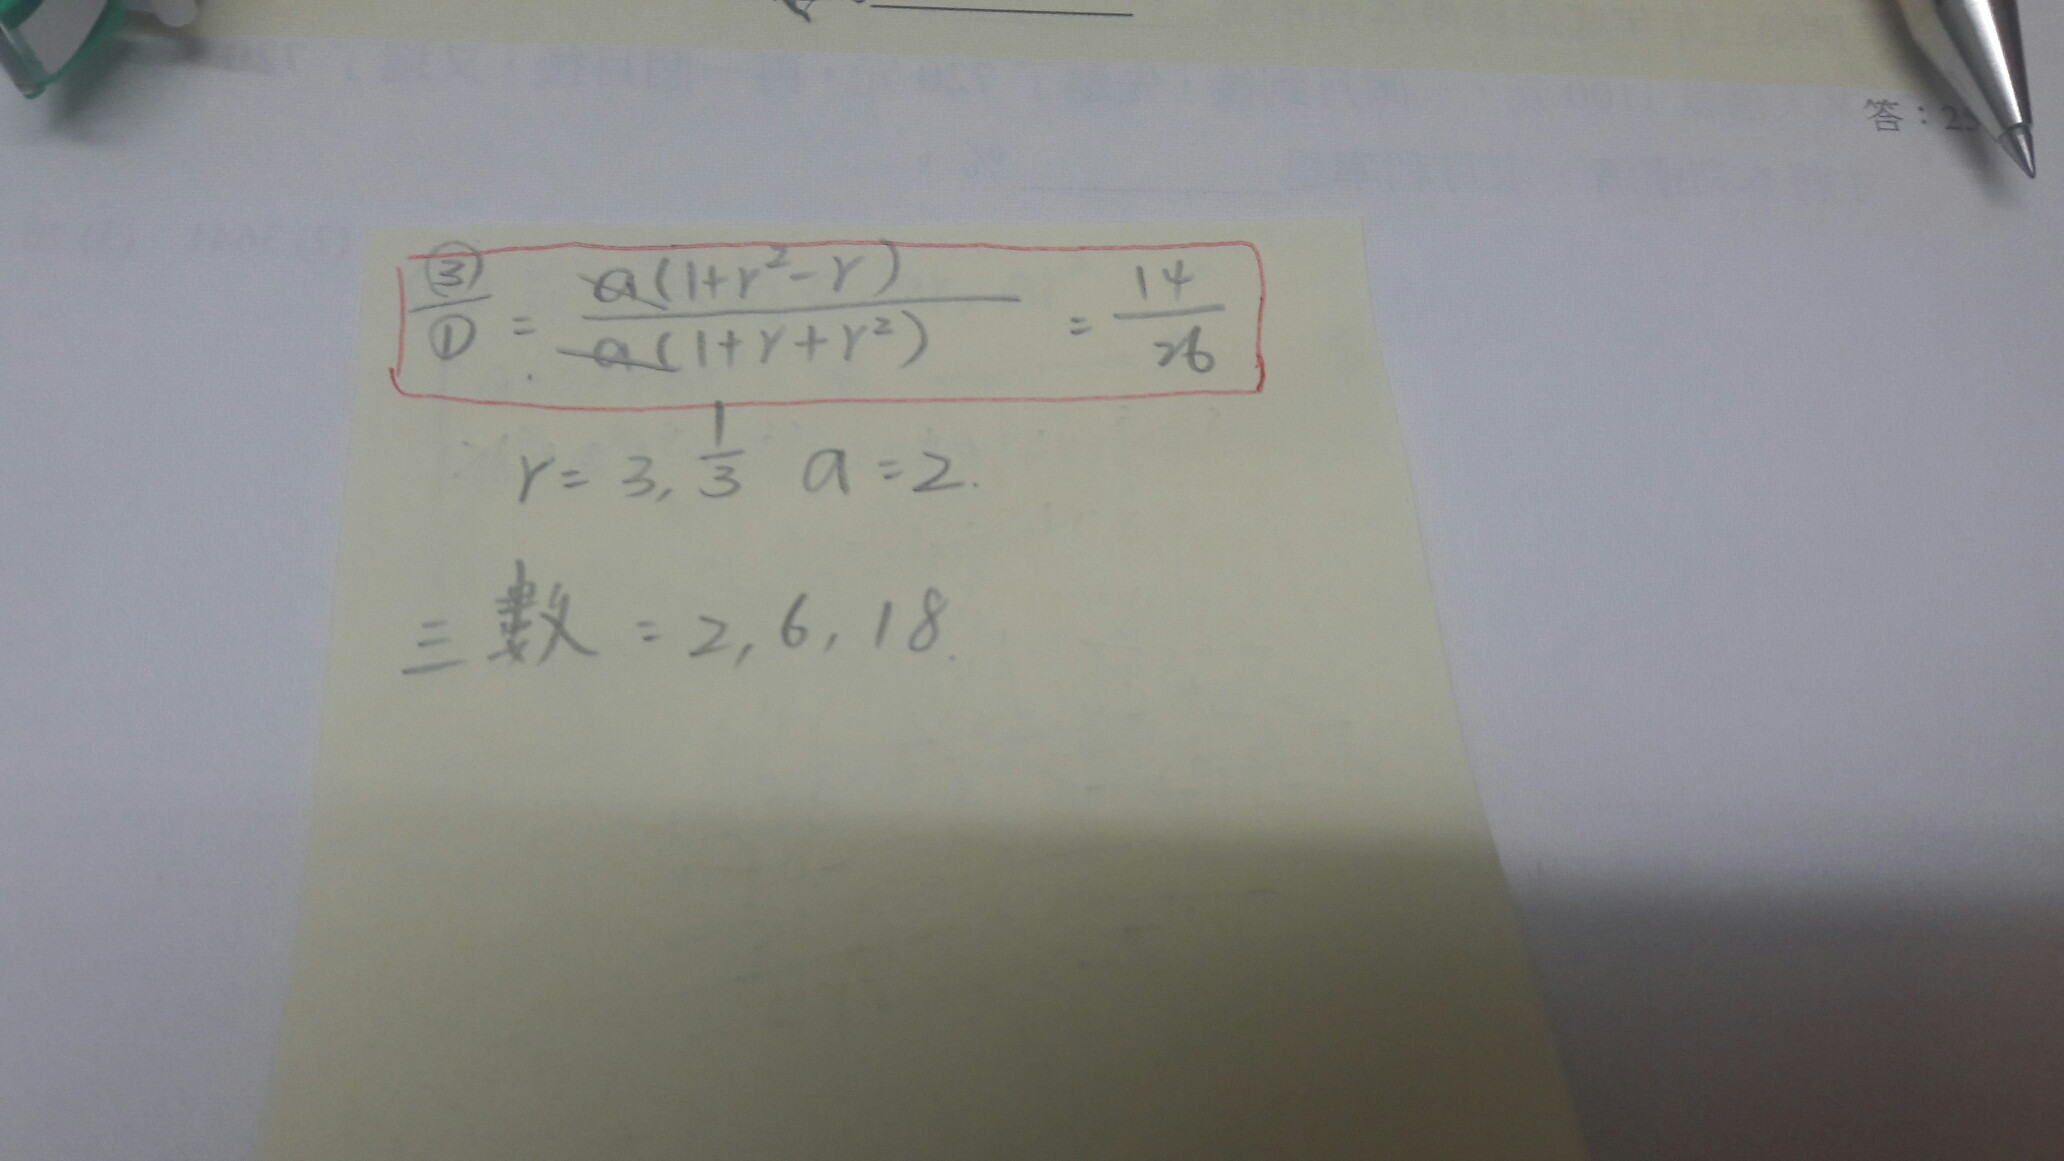 答：2
③/① = a(1+r²-r)/a(1+r+r²) = 14/26
r = 3, 1/3 a = 2.
三數 = 2, 6, 18.